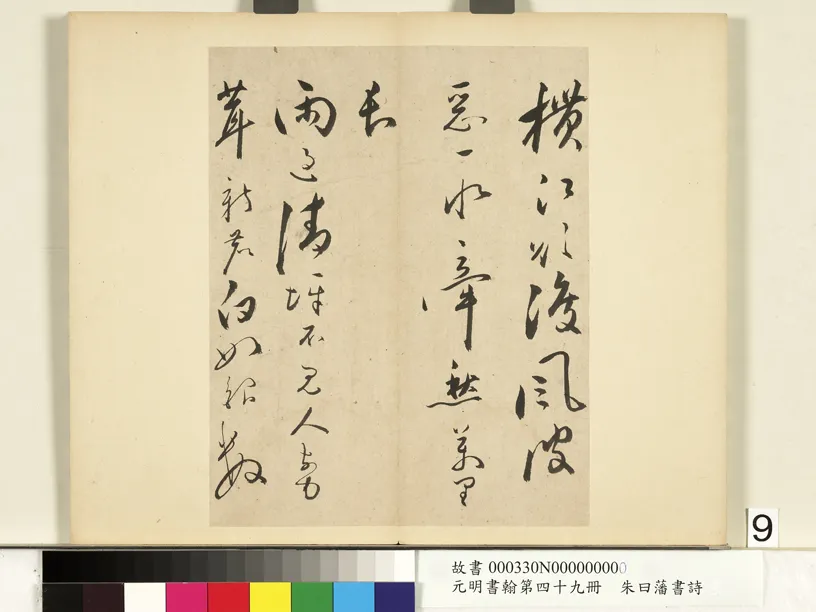 橫江欲渡風波
惡一水牽愁萬里
長
雨過清坪不見人
茸新茗白如銀數
9
故書 000330N000000000
元明書翰第四十九冊 朱曰藩書詩